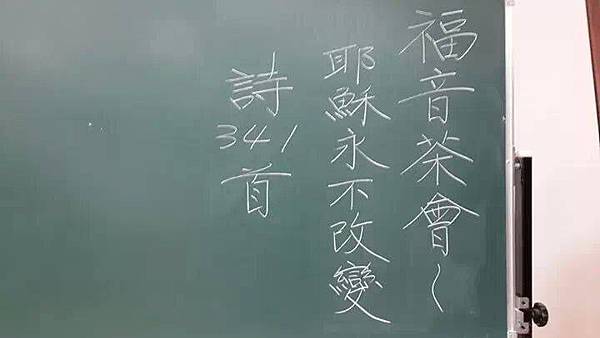 福音茶會~
耶穌永不改變
詩341首